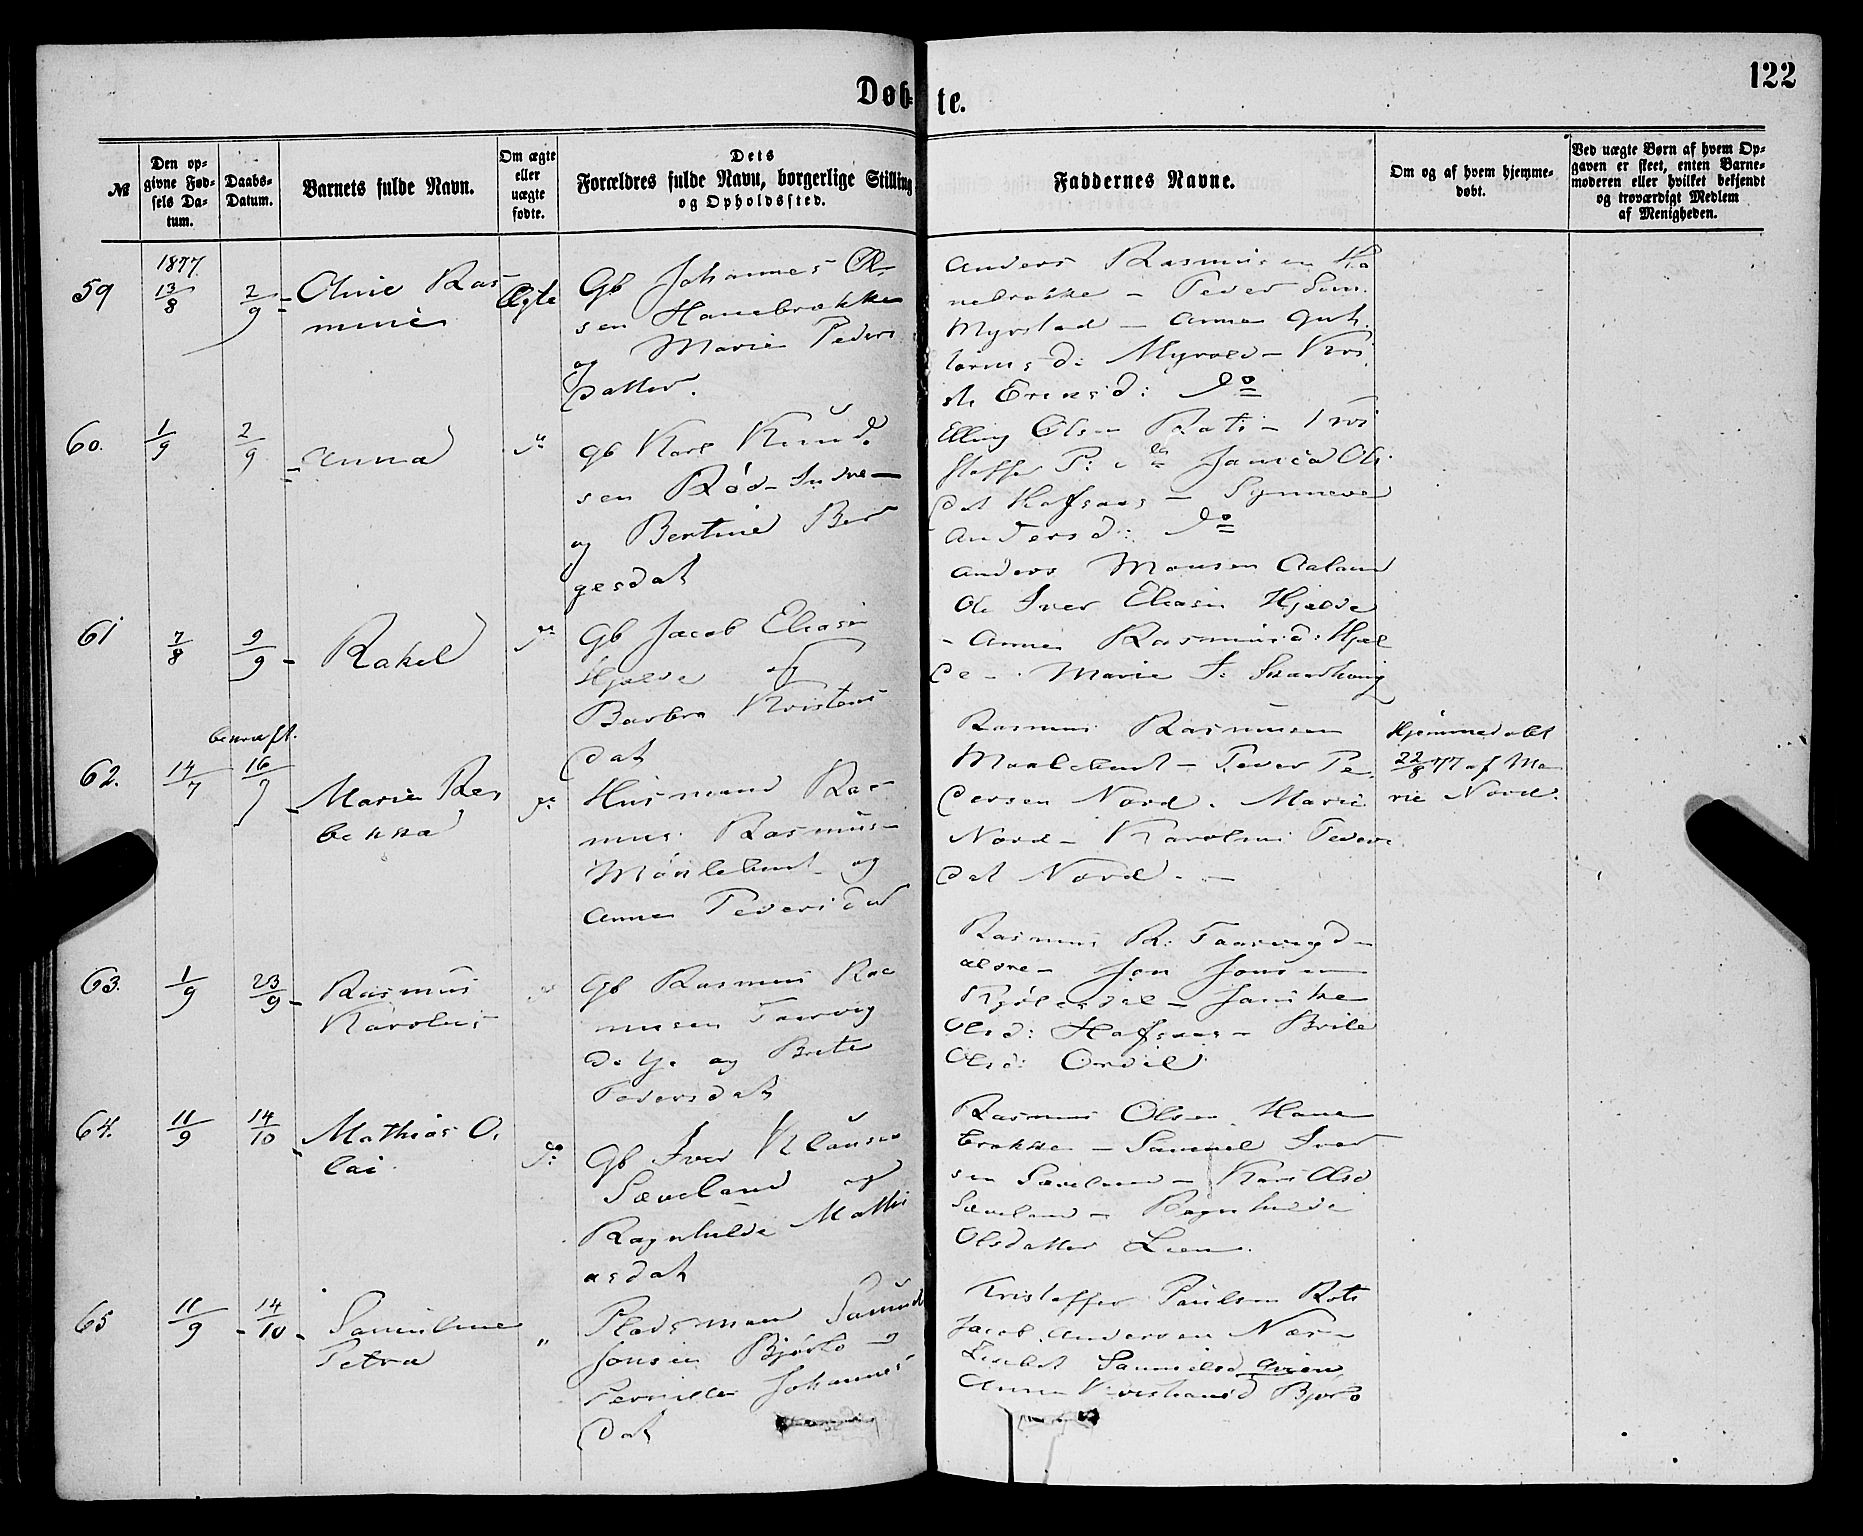 Døb-
te.
122
№
Den op-
givne Fød-
sels Da-
tum.
Daabs-
Datum.
Barnets fulde Navn.
Om ægte
eller
uægte
fødte.
Dets
Forældres fulde Navn, borgerlige Stilling
og Opholdssted.
Faddernes Navne.
Om og af hvem hjemme-
døbt.
Ved uægte Børn af hvem Op-
gaven er skeet, enten Barne-
moderen eller hvilket bekjendt
og troværdigt Medlem
af Menigheden.
1877.
59
13/8
2/9
Oline Ras
mine
Ægte
Gb Johannes Ol
sen Hanebrække
og Marie Peders
datter.
Anders Rasmusen Ha
nebrække - Peder Sim.
Myrstad - Anne Gut
torms d: Myrold - Kri
sti Eriksd: Do
60.
1/9
2/9
Anna
do
Gb Karl Knud
sen Rød-Indre
og Bertine Ber
gesdat
Elling Olsen Roti - Kri
stoffer P:
dat Hafsaas - Synneve
Andersd: Do
61
7/8
9/9
Rakel
do
Gb Jacob Eliasen
Hjelde og
Barbro Kristens
dat
Anders Monsen Aaland
Ole Iver Eliasen Hjelde
- Anne Rasmusd: Hjel
de - Marie
62.
14/7
bekræft.
16/9
Marie Re
bekka
do
Husmand Ras
mus Rasmus-
og
Anne Pedersdat
Rasmus Rasmusen
- Peder Pe
dersen Nord. Marie
Nord - Karoline Peders
dat Nord. -
Hjemmedøbt
22/8 77 af Ma
rie Nord.
63.
1/9
23/9
Rasmus
Karolus
do
Gb Rasmus Ras
musen Taarvig
og Brite
Pedersdat
Rasmus R:
- Jon Jonsen
Olsd: Hafsaas - Brite
Olsd: Ordal
64.
11/9
14/10
Mathias O.
lai
do:
Gb Iver Klausen
Sæveland og
Ragnhilde Mathi
asdat
Rasmus Olsen Hane
brække - Samuel Iver
sen Sæveland - Kari Olsd
Sæveland - Ragnhilde
Olsdatter Lien.
65
11/9
14/10
Samueline
Petra
"
Pladsmand Samuel
Jonsen Bjørlo og
Pernille Johannes
dat
Kristoffer Paulsen Roti
Jacob Andersen Næs
Lisabet Samuelsd
Anne Kristiansd Bjørlo